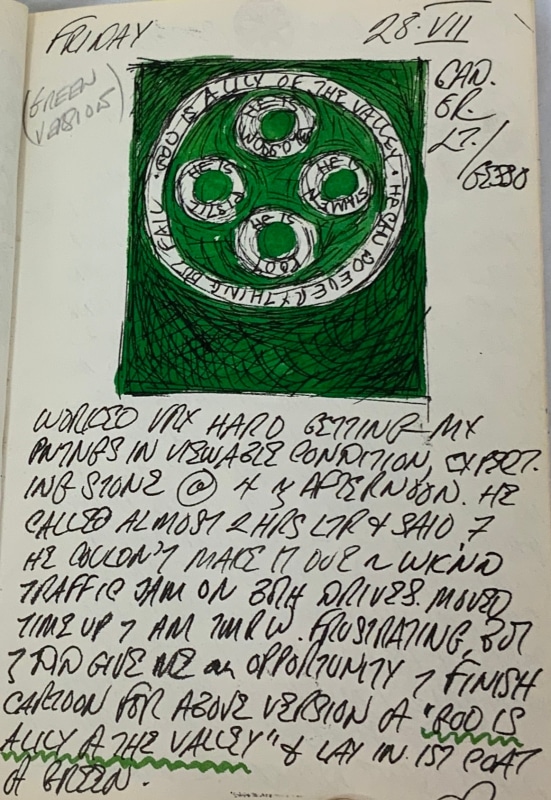 FRIDAY
28·VII
(GREEN
VERSION)
CAD.
GR.
LT./
GESSO
GOD IS A LILY OF THE VALLEY · HE CAN DO EVERYTHING BUT FAIL ·
HE IS BLOSSOM
HE IS PISTIL
HE IS STAMEN
HE IS ROOT
WORKED VRY HARD GETTING MY
PNTNGS IN VIEWABLE CONDITION, EXPECT-
ING STONE @ 4 AFTERNOON. HE
CALLED ALMOST 2 HRS LTR & SAID
HE COULDN'T MAKE IT DUE WKND
TRAFFIC JAM ON BTH DRIVES. MOVED
TIME UP AM TMRW. FRUSTRATING, BUT
DID GIVE ME an OPPORTUNITY FINISH
CARTOON FOR ABOVE VERSION "GOD IS
A LILY THE VALLEY" & LAY IN 1ST COAT
GREEN.